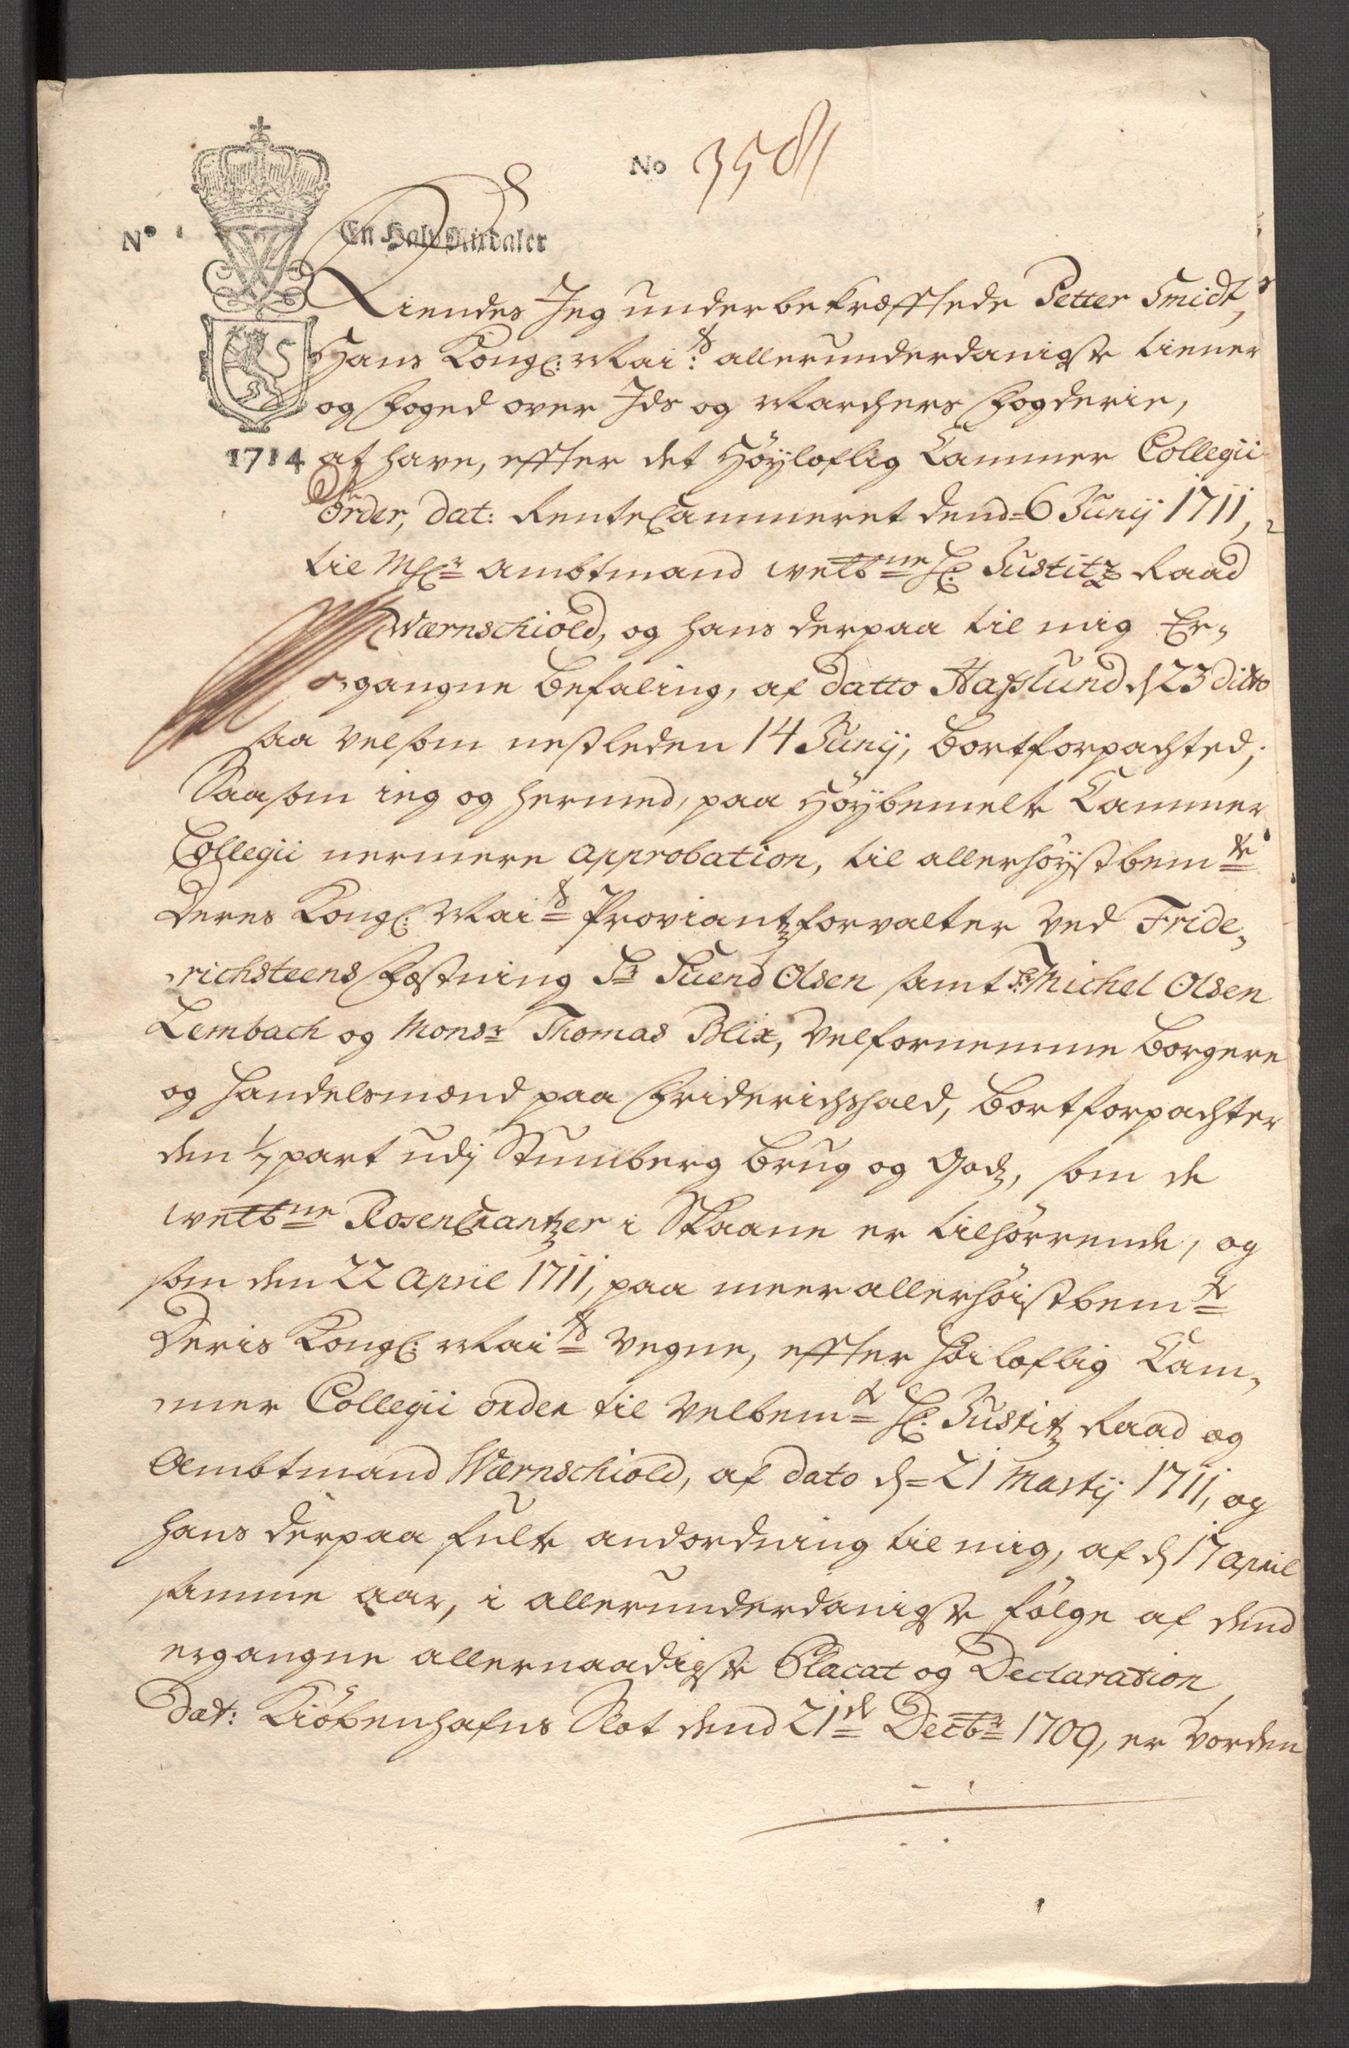 No 3584
No 1
En Halv Rixdaler
Kiendes Jeg underbekræfftede Petter Smidt,
Hans Kongl: Mai:ts allerunderdanigste tiener
og foged over Ids og Marchers fogderie,
1714
at have, effter det Höyloflig Cammer Collegii
Order, dat: RenteCammeret dend 6 Junij 1711,
til Ambtmand welbne Hr: Justitz Raad
Wærnschiold, og hans derpaa til mig Er-
gangne befaling, af datto Hafslund d 23 ditto
saa velsom nestleden 14 Junij, bortforpachted;
Saasom ieg og hermed, paa Höybemelte Cammer
Collegii nermere approbation, til allerhöystbemte
Deres Kongl: Maits Proviantzforvalter ved Fride-
richsteens Festning Sr Suend Olsen samt Sr Michel Olsen
Lembach og Monsr Thomas Blix, velfornemme borgere
og handelsmænd paa Friderichshald, bortforpachter
den 1/7 part udj Stumberg brug og Godz, som de
welbne Rosencrantzer i Skaane er tilhörrende, og
som den 22 April 1711, paa meerallerhöistbemte
Deris Kongl: Maits vegne, effter höiloflig Cam-
mer Collegii order til velbemte Hr: Justitz Raad og
Ambtmand Wærnschiold, af dato d 21 Martij 1711, og
hans derpaa fulte andordning til mig, af d 17 April
samme aar, i allerunderdanigste fölge af dend
ergangne allernaadigste Placat og Declaration
Dat: Kiöbenhafns Slot dend 21de Decbr 1709, er vorden